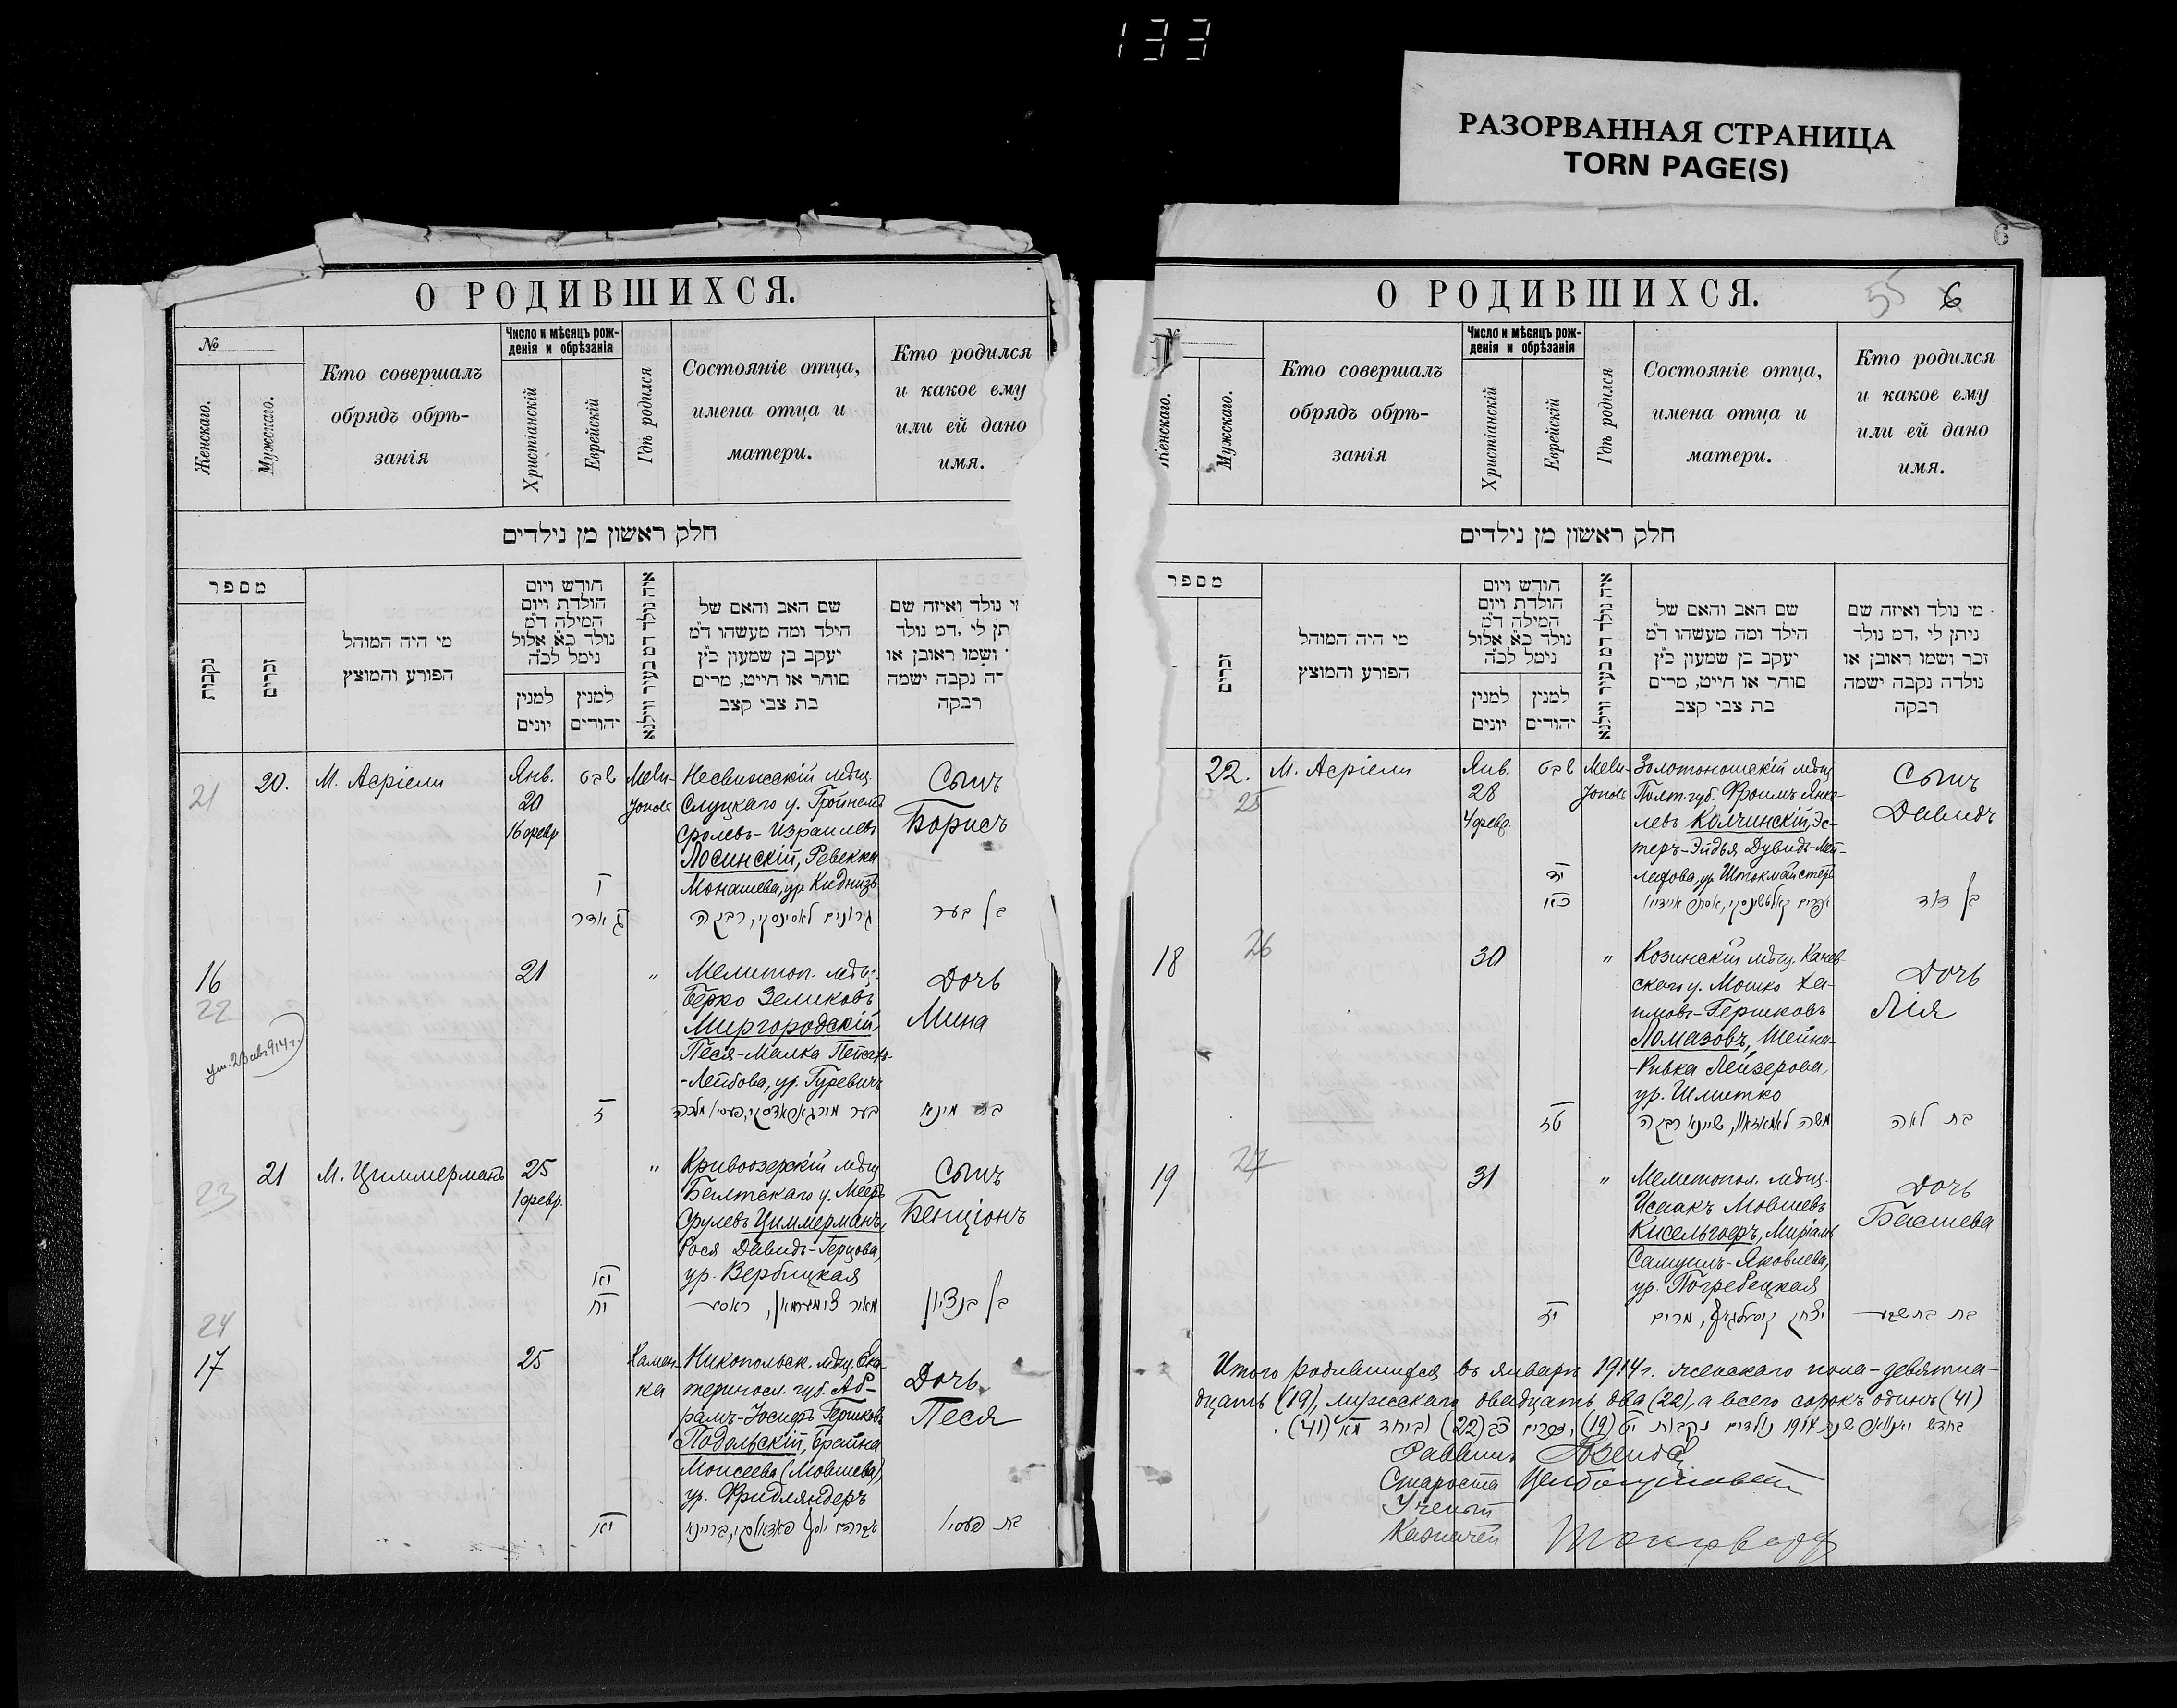 133
РАЗОРВАННАЯ СТРАНИЦА
TORN PAGE(S)
О РОДИВШИХСЯ.
№
Женскаго.
Мужескаго.
Кто совершалъ
обрядъ обрѣ-
занія
Число и мѣсяцъ рож-
денія и обрѣзанія
Христіанскій
Еврейскій
Годъ родился
Состояніе отца,
имена отца и
матери.
Кто родился
и какое ему
или ей дано
имя.
חלק ראשון מן נילדים
מספר
נקבות
זכרים
מי היה המוהל
הפורע והמוצץ
חודש ויום
הולדת ויום
המילה ד"מ
נולד כ"א אלול
נימל לכ"ה
למנין
יונים
למנין
יהודים
איה נולד דמ בעיר ווילנא
שם האב והאם של
הילד ומה מעשהו ד"מ
יעקב בן שמעון כ"ץ
סוחר או חייט, מרים
בת צבי קצב
י נולד ואיזה שם
תן לי ,דמ נולד
ושמו ראובן או
דה נקבה ישמה
רבקה
21
20.
М. Асріели
Янв.
20
16 февр.
שבט
Мели-
тополь
Несвижскій мѣщ.
Слуцкаго у.
Сролевъ-Израилевъ
Лосинскій, Ревекка
Монашева, ур.
Сынъ
Борисъ
אדר
בן בער
16
22
ум. 23 авг 914 г.
21
"
Мелитоп. мѣщ.
Берко Зеликовъ
Миргородскій,
Песя-Малка Пейсахъ-
-Лейбова, ур. Гуревичъ
Дочь
Мина
ז
בת מינא
23
21
М. Циммерманъ
25
1 февр.
"
Кривоозерскій мѣщ.
Балтскаго у. Мееръ
Срулевъ Циммерманъ,
Рося Давидъ-Герцова,
ур. Вербицкая
Сынъ
Бенціонъ
מאיר צימערמאן, ראסע
בן בנציון
24
17
25
Камен-
ка
Никопольск. мѣщ. Ека-
теринос. губ. Аб-
рамъ-Іосифъ Гершковъ
Подольскій, Брайна
Моисеева (Мовшева)
ур. Фридляндеръ
Дочь
Песя
אברהם יוסף פאדאלסקי, בריינא
בת פעסיא
О РОДИВШИХСЯ.
55 6
6
№
Женскаго.
Мужскаго.
Кто совершалъ
обрядъ обрѣ-
занія
Число и мѣсяцъ рож-
денія и обрѣзанія
Христіанскій
Еврейскій
Годъ родился
Состояніе отца,
имена отца и
матери.
Кто родился
и какое ему
или ей дано
имя.
חלק ראשון מן נילדים
מספר
זכרים
מי היה המוהל
הפורע והמוצץ
חודש ויום
הולדת ויום
המילה ד"מ
נולד כ"א אלול
נימל לכ"ה
למנין
יונים
למנין
יהודים
איה נולד דמ בעיר ווילנא
שם האב והאם של
הילד ומה מעשהו ד"מ
יעקב בן שמעון כ"ץ
סוחר או חייט, מרים
בת צבי קצב
מי נולד ואיזה שם
ניתן לי ,דמ נולד
זכר ושמו ראובן או
נולדה נקבה ישמה
רבקה
22.
25
М. Асріели
Янв.
28
4 февр.
שבט
Мели-
тополь
Золотоношскій мѣщ.
Полт. губ. Фроимъ Янке-
левъ Колчинскій, Эс-
теръ-Эйдья Дувидъ-Мей-
лехова, ур. Штокмайстеръ
Сынъ
Давидъ
בן דוד
18
26
30
"
Козинскій мѣщ. Канев-
скаго у. Мошко Ха-
имовъ-Гершковъ
Ломазовъ, Шейна-
-Ривка Лейзерова,
ур. Шлитко
Дочь
Лія
טז
משה לאמאזאוו, שיינא רבקה
בת לאה
19
27
31
"
Мелитопол. мѣщ.
Исаакъ Мовшевъ
Кисельгофъ, Миріамъ
Самуилъ-Яковлева,
ур. Погребецкая
Дочь
Басшева
יז
יצחק קיסעלגאף, מרים
בת בת שבע
Итого родившихся въ январѣ 1914 г. женскаго пола-девятна-
дцать (19), мужскаго двадцать два (22), а всего сорокъ одинъ (41)
בחדש יאנואר שנת 1914 נולדים נקבות יט (19), זכרים כב (22) וביחד מא (41).
Раввинъ
Староста
Ученый
Казначей